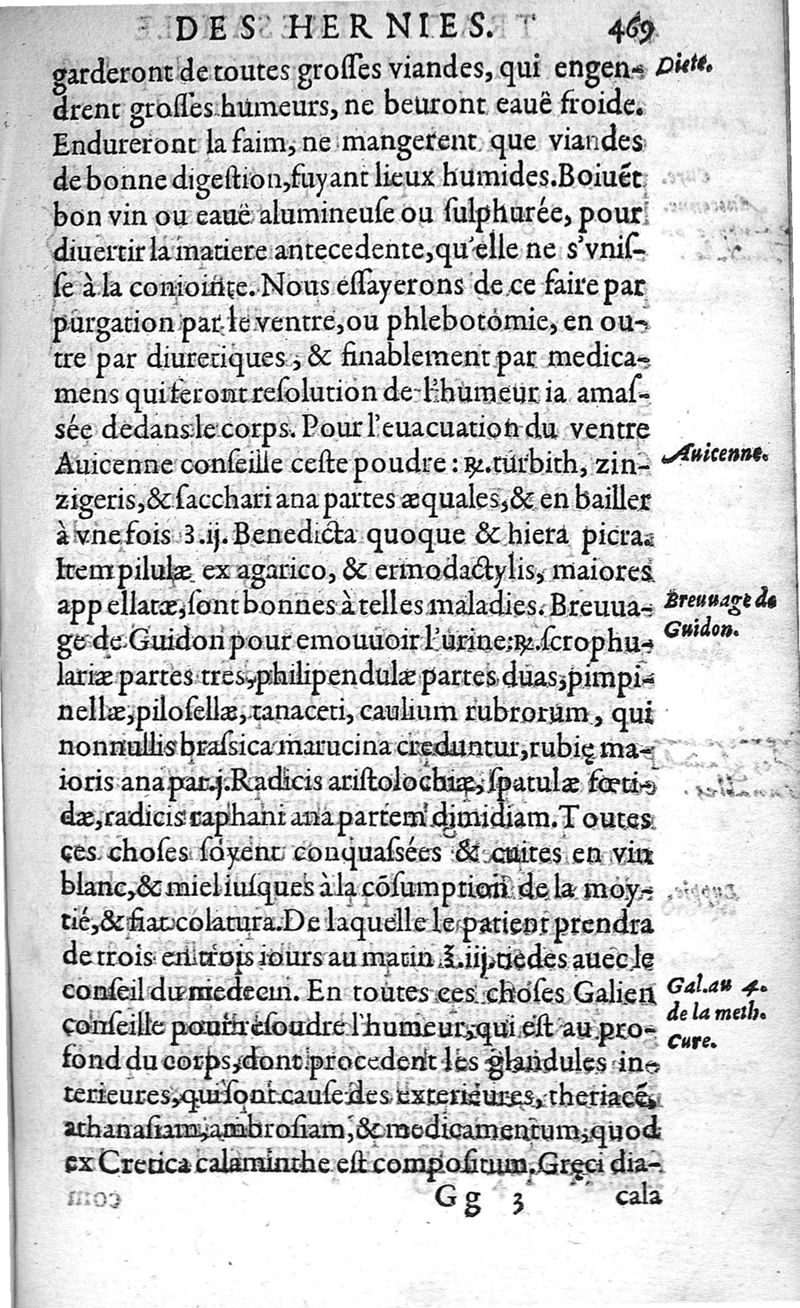 DES HERNIES. 469
garderont de toutes grosses viandes, qui engen- Diete.
drent grosses humeurs, ne beuront eauë froide.
Endureront la faim, ne mangerent que viandes
de bonne digestion, fuyant lieux humides. Boiuẽt
bon vin ou eauë alumineuse ou sulphurée, pour
diuertir la matiere antecedente, qu'elle ne s'vnis-
se à la conioincte. Nous essayerons de ce faire par
purgation par le ventre, ou phlebotomie, en ou-
tre par diuretiques, & finablement par medica-
mens qui feront resolution de l'humeur ia amas-
sée dedans le corps. Pour l'euacuation du ventre
Auicenne conseille ceste poudre : ℞. turbith, zin- Auicenne.
zigeris, & sacchari ana partes æquales, & en bailler
à vne fois ʒ.ij. Benedicta quoque & hiera picra.
Item pilulæ ex agarico, & ermodactylis, maiores
appellatæ, sont bonnes à telles maladies. Breuua- Breuuage de
ge de Guidon pour emouuoir l'urine: ℞. scrophu- Guidon.
lariæ partes tres, philipendulæ partes duas, pimpi-
nellæ, pilosellæ, tanaceti, caulium rubrorum, qui
nonnullis brassica marucina creduntur, rubię ma-
ioris ana par.j. Radicis aristolochiæ, spatulæ fœti-
dæ, radicis raphani ana partem dimidiam. Toutes
ces choses soyent conquassées & cuites en vin
blanc, & miel iusques à la cõsumption de la moy-
tié, & fiat colatura. De laquelle le patient prendra
de trois en trois iours au matin ℥.iij. tiedes auec le
conseil du medecin. En toutes ces choses Galien Gal. au 4.
conseille pour resoudre l'humeur, qui est au pro- de la meth.
fond du corps, dont procedent les glandules in- Cure.
terieures, qui sont cause des exterieures, theriacẽ,
athanasiam, ambrosiam, & medicamentum, quod
ex Cretica calaminthe est compositum, Gręci dia-
Gg 3 cala